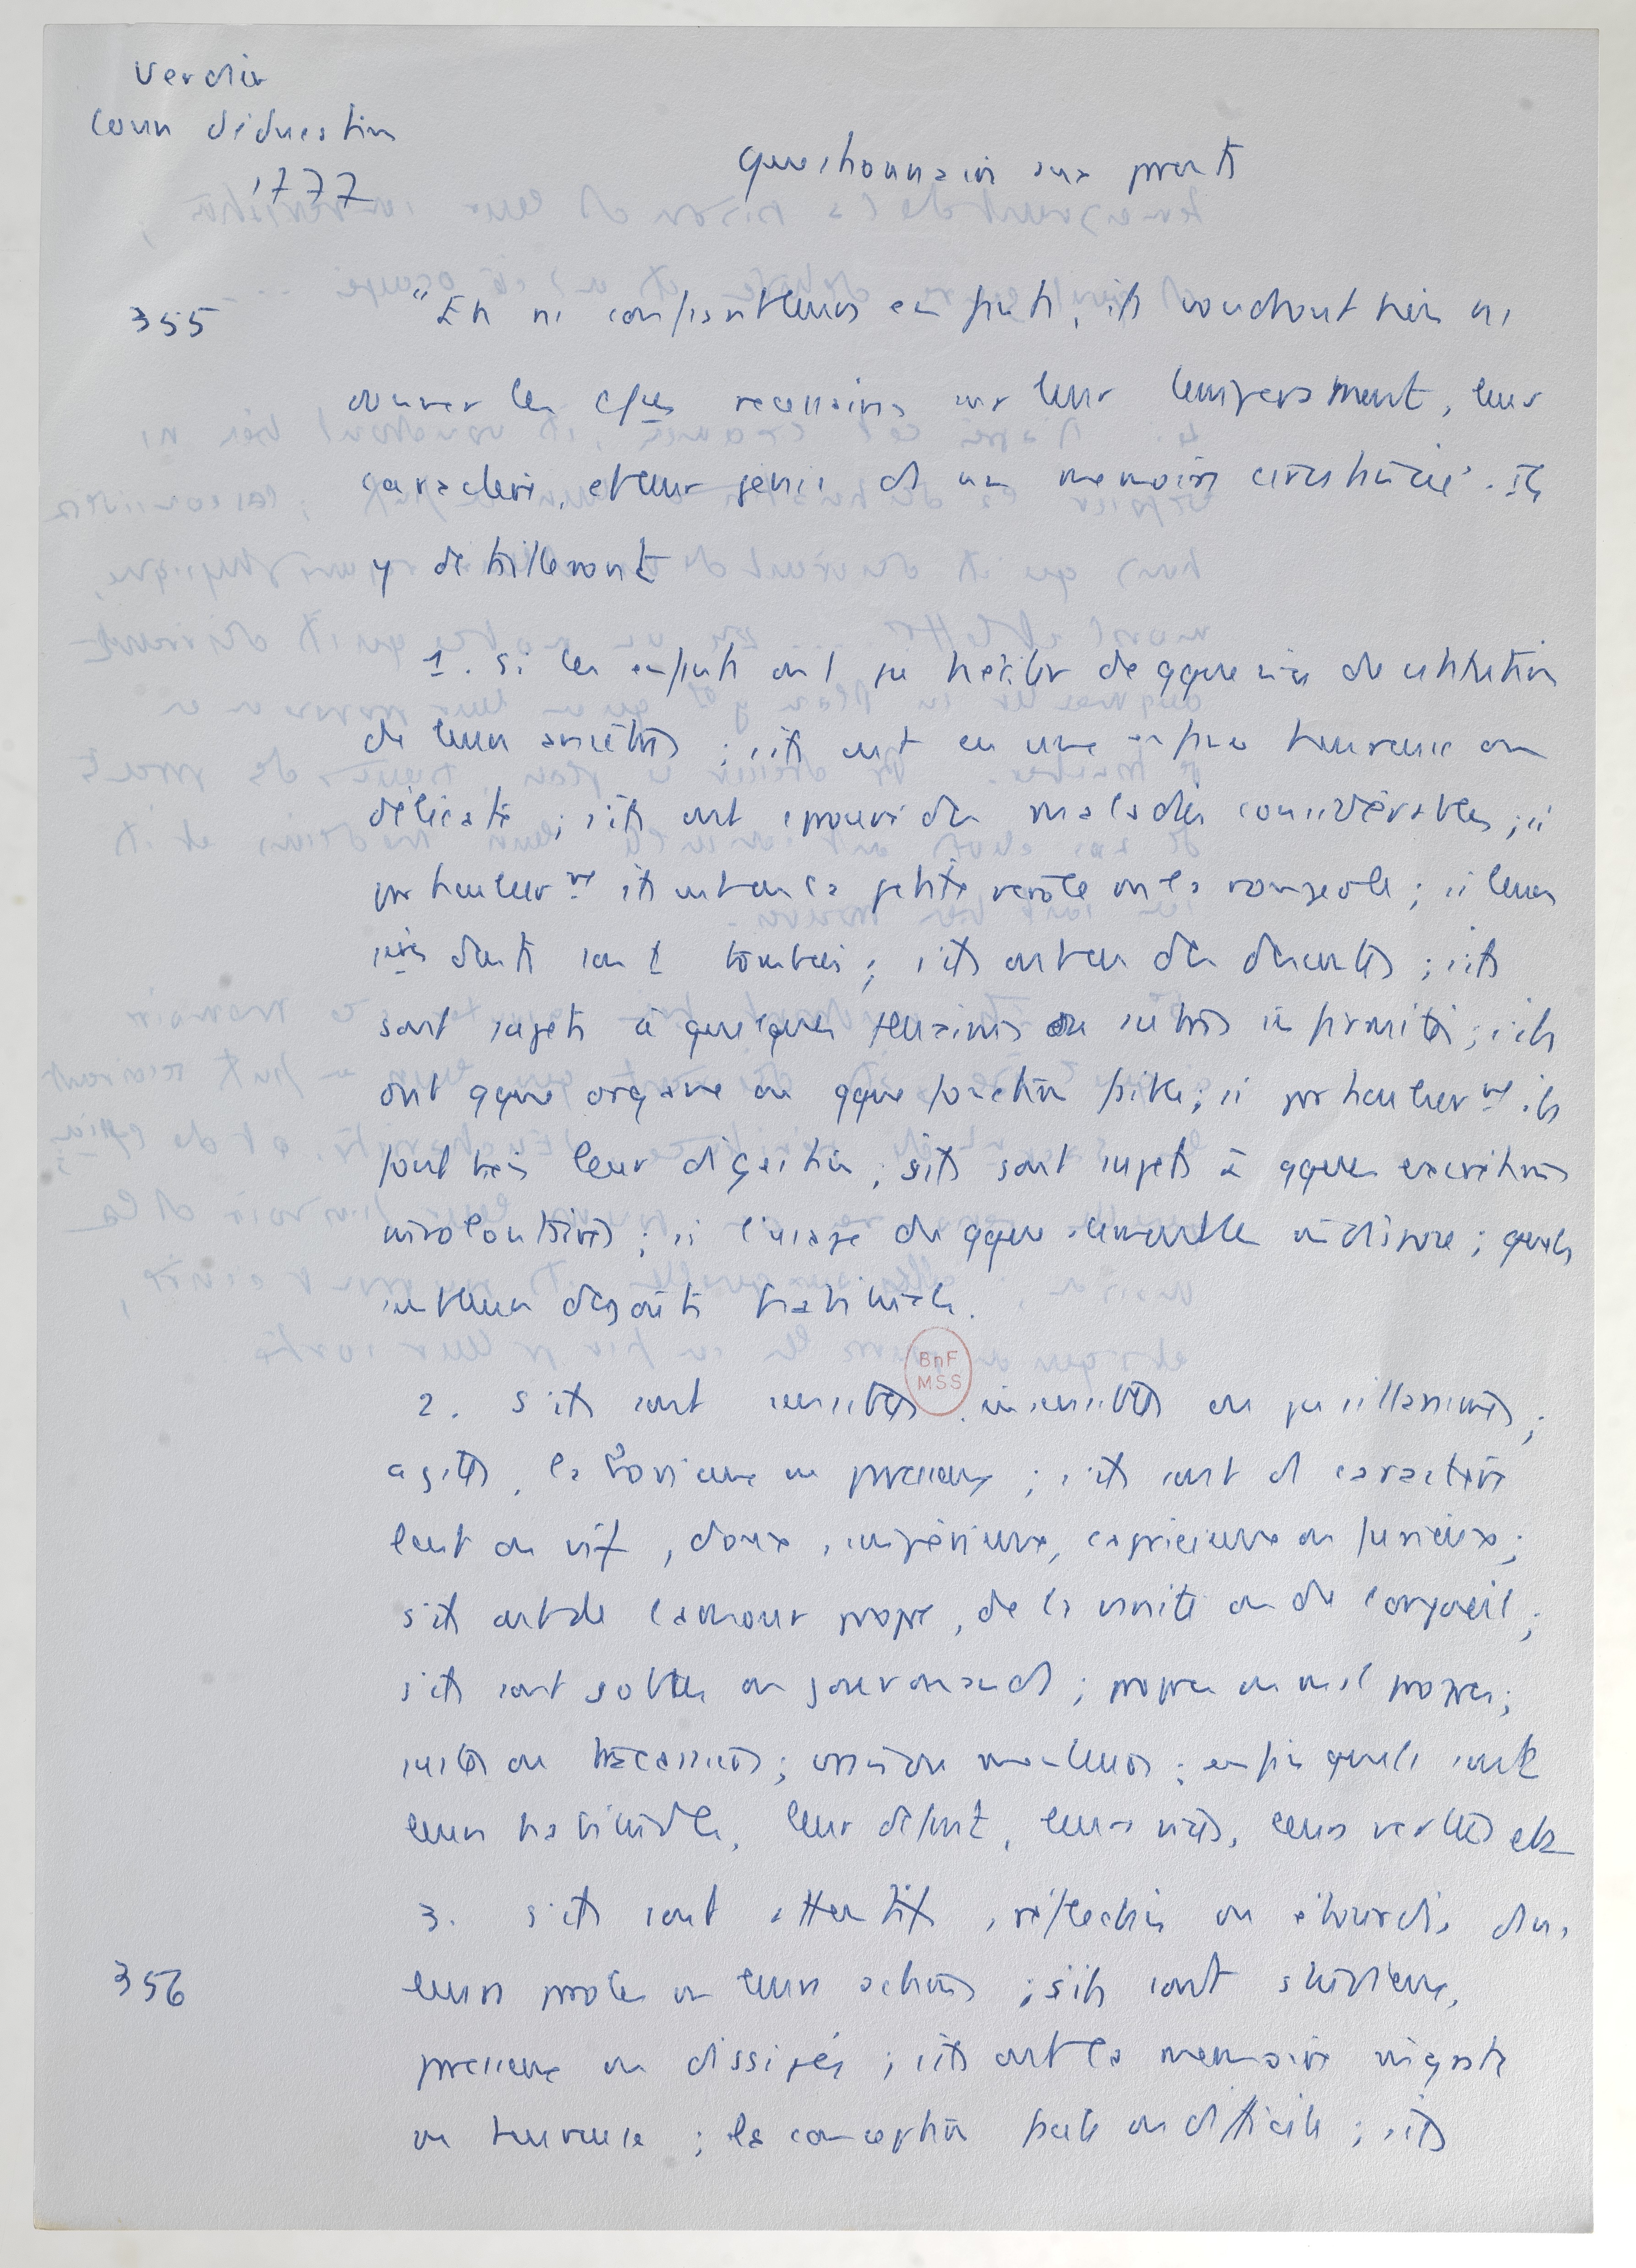 Verdier
Cours d'éducation
1777
Questionnaire aux parents
355
"En me confiant leurs enfants, ils voudront bien me
donner les choses nécessaires sur leur tempérament, leur
caractère, et leur génie ds un mémoire circonstancié. Ils
y détailleront
1. si les enfants ont pu hériter de qque vice de constitution
de leurs ancêtres ; s'ils ont eu une enfance heureuse ou
délicate ; s'ils ont éprouvé des maladies considérables ; si
ils ont eu la petite vérole ou la rougeole ; si leurs
dents sont tombées ; s'ils ont eu des descentes ; s'ils
sont sujets à quelques fluxions ou autres infirmités ; s'ils
ont qque organe ou qque fonction faible ; si ils
font bien leur digestion ; s'ils sont sujets à qques excrétions
involontaires ; si l'usage de qques aliments les indispose ; quels
sont leurs dégoûts habituels.
BnF
MSS
2. s'ils sont sensibles, insensibles ou pusillanimes ;
agités, laborieux ou paresseux ; s'ils sont de caractère
lent ou vif, doux, impérieux, capricieux ou furieux ;
s'ils ont de l'amour propre, de la vanité ou de l'orgueil ;
s'ils sont sobres ou gourmands ; propres ou mal propres ;
vrais ou menteurs ; enfin quels sont
leurs habitudes, leur défaut, leurs vices, leurs vertus etc
3. s'ils sont attentifs, réfléchis ou étourdis dans
356
leurs paroles ou leurs actions ; s'ils sont studieux,
paresseux ou dissipés ; s'ils ont la mémoire ingrate
ou heureuse ; la conception facile ou difficile ; s'ils